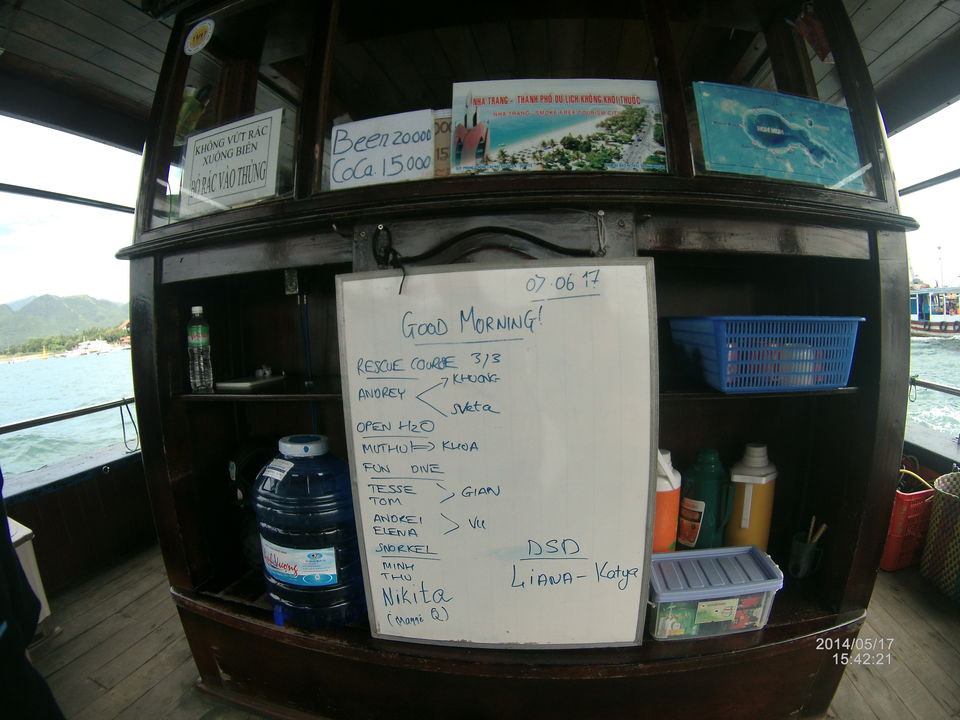 KHÔNG VỨT RÁC
XUỐNG BIỂN
BỎ RÁC VÀO THÙNG
Beer 20000
CoCa. 15.000
NHA TRANG - THÀNH PHỐ DU LỊCH KHÔNG KHÓI THUỐC
NHA TRANG - SMOKE FREE TOURISM CITY
HON MUN
07.06 17
GOOD MORNING!
RESCUE COURSE 3/3
ANDREY KHUONG
SVeta
OPEN H2O
MUTHU KHOA
FUN DIVE
TESSE
TOM
GIAN
ANDREI
ELENA
VU
SNORKEL
MINH
THU
NiKiTA
(MAMMI Q)
DSD
LIANA - Katya
2014/05/17
15:42:21